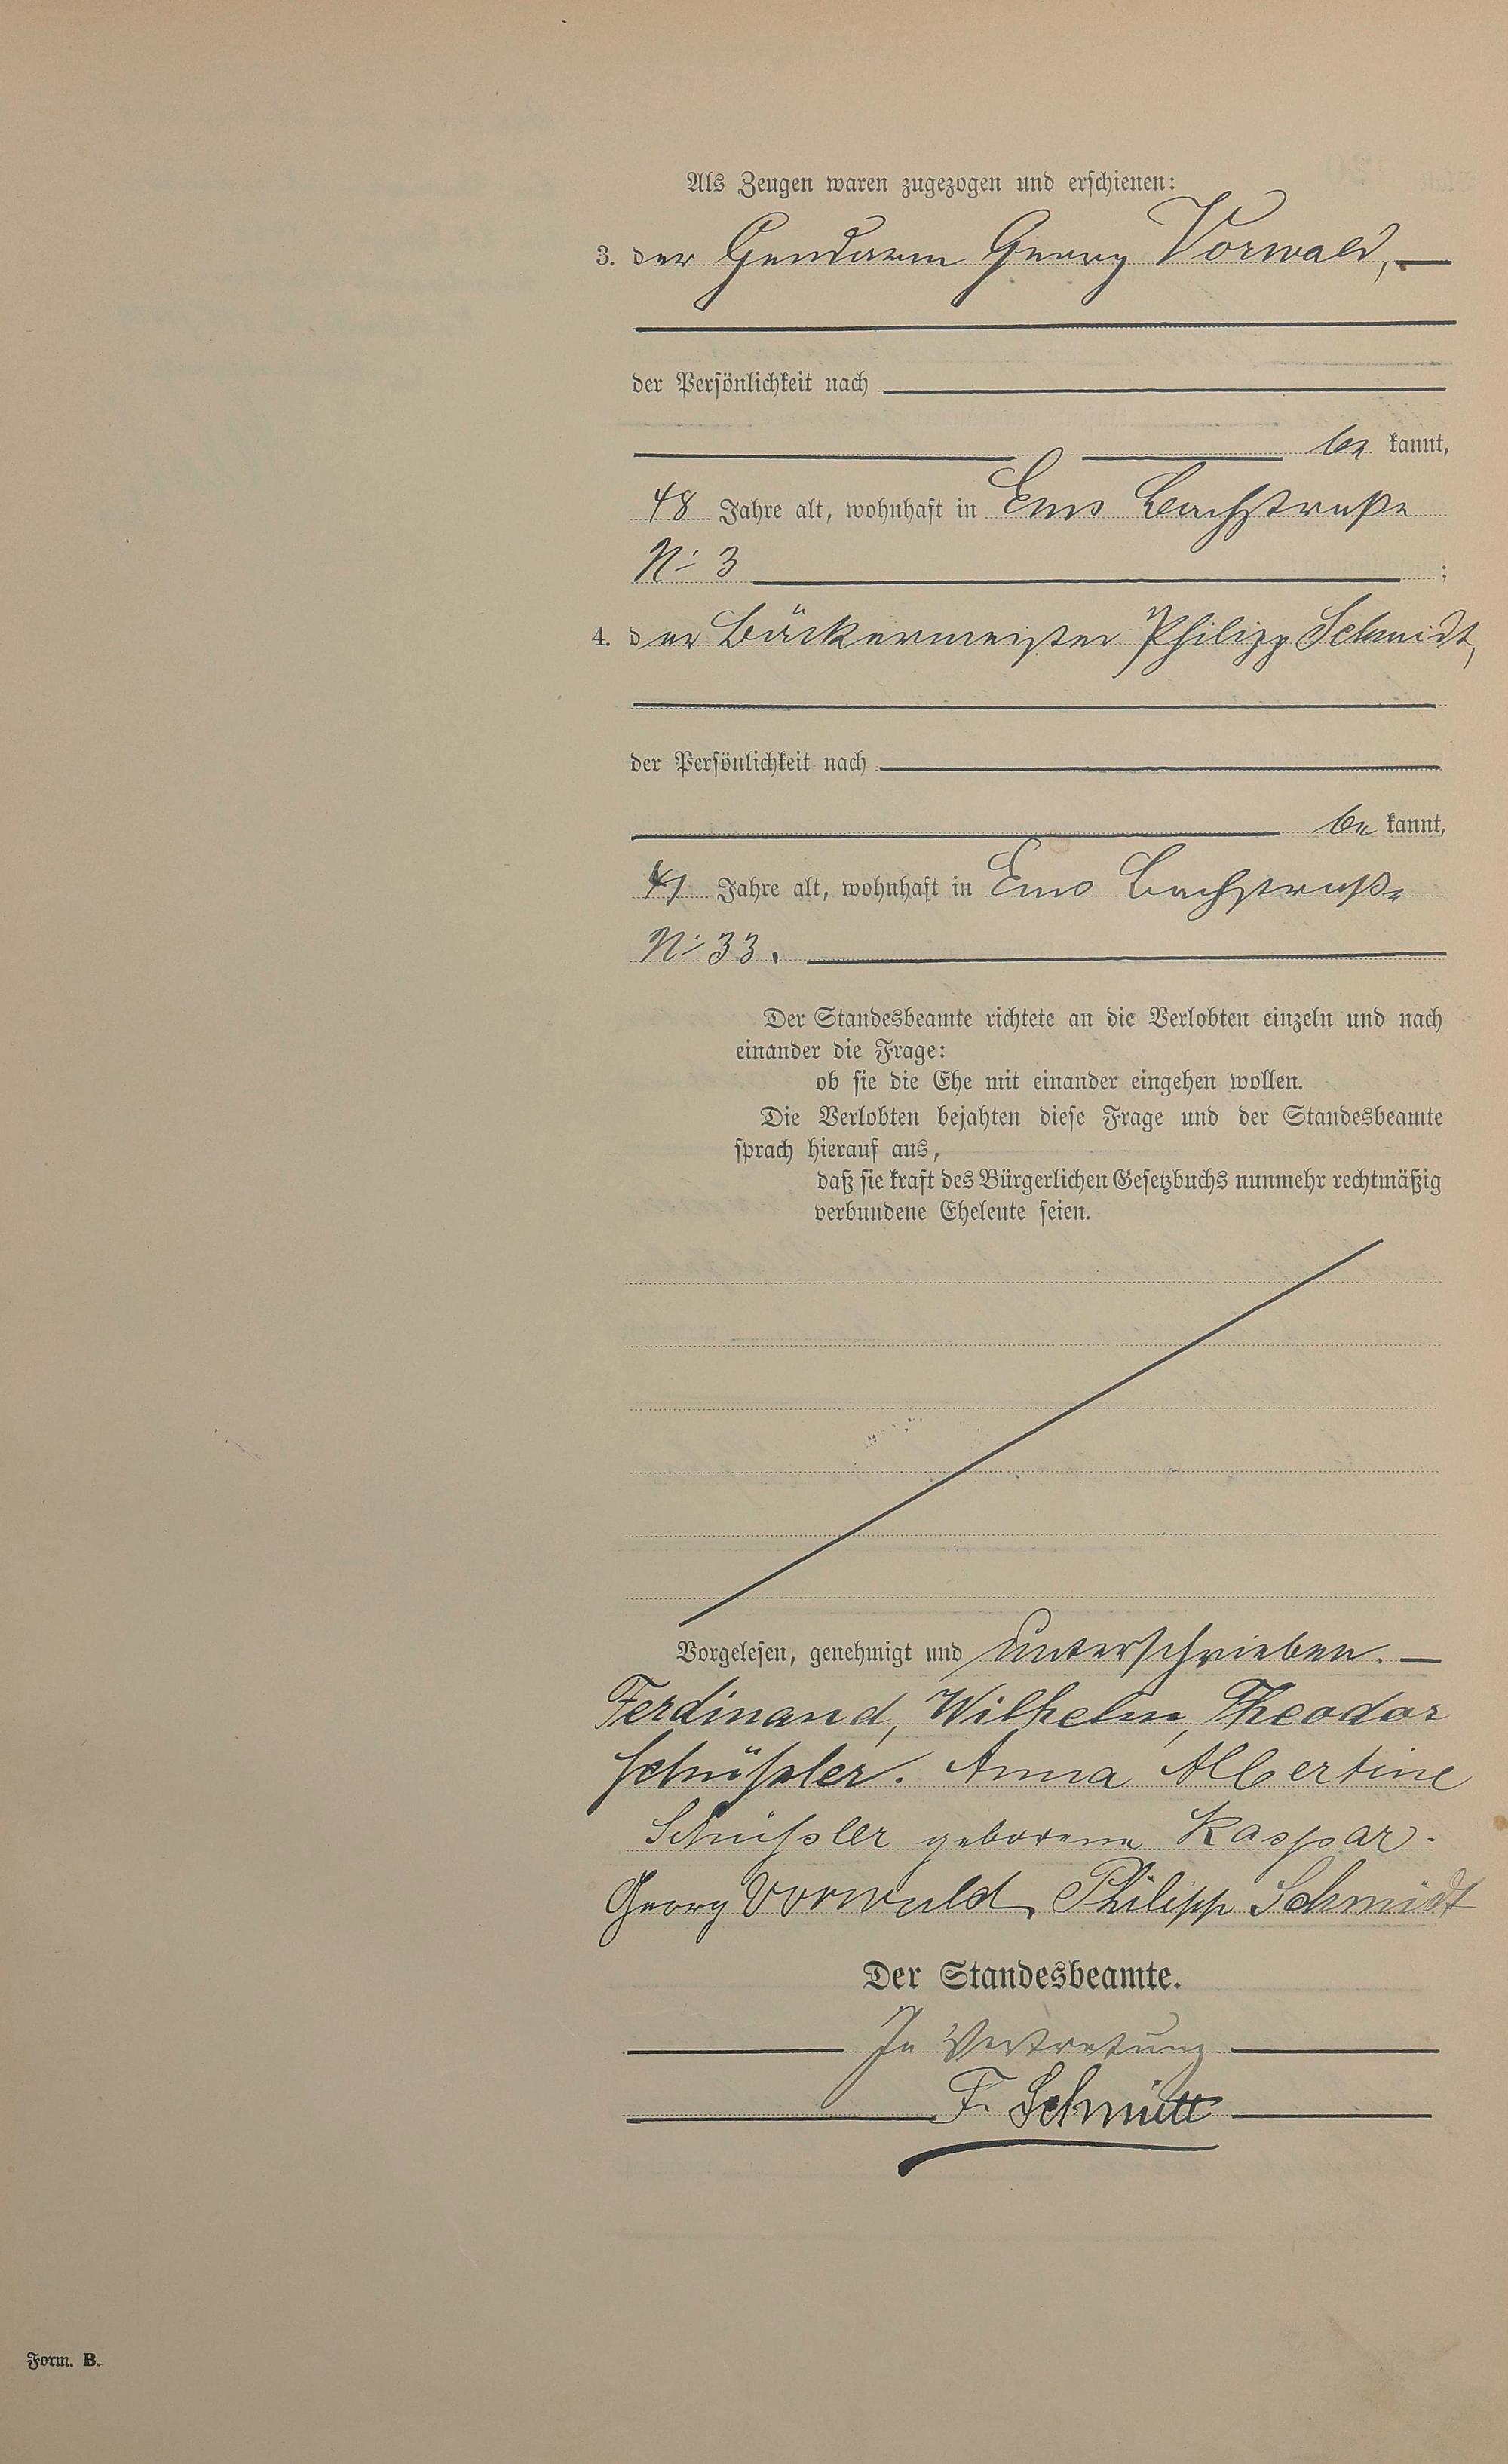 Als Zeugen waren zugezogen und erschienen:
3. der Gendarm Georg Vorwald,
der Persönlichkeit nach
be kannt,
48 Jahre alt, wohnhaft in Ems Bachstraße
No 3 ;
4. der Bäckermeister Philipp Schmidt,
der Persönlichkeit nach
be kannt,
41 Jahre alt, wohnhaft in Ems Bachstraße
No 33.
Der Standesbeamte richtete an die Verlobten einzeln und nach
einander die Frage:
ob sie die Ehe mit einander eingehen wollen.
Die Verlobten bejahten diese Frage und der Standesbeamte
sprach hierauf aus,
daß sie kraft des Bürgerlichen Gesetzbuchs nunmehr rechtmäßig
verbundene Eheleute seien.
Vorgelesen, genehmigt und unterschrieben.
Ferdinand, Wilhelm, Theodor
Schüßler. Anna Albertine
Schüßler geborene Kaspar.
Georg Vorwald, Philipp Schmidt
Der Standesbeamte.
In Vertretung
F. Schmitt
Form. B.